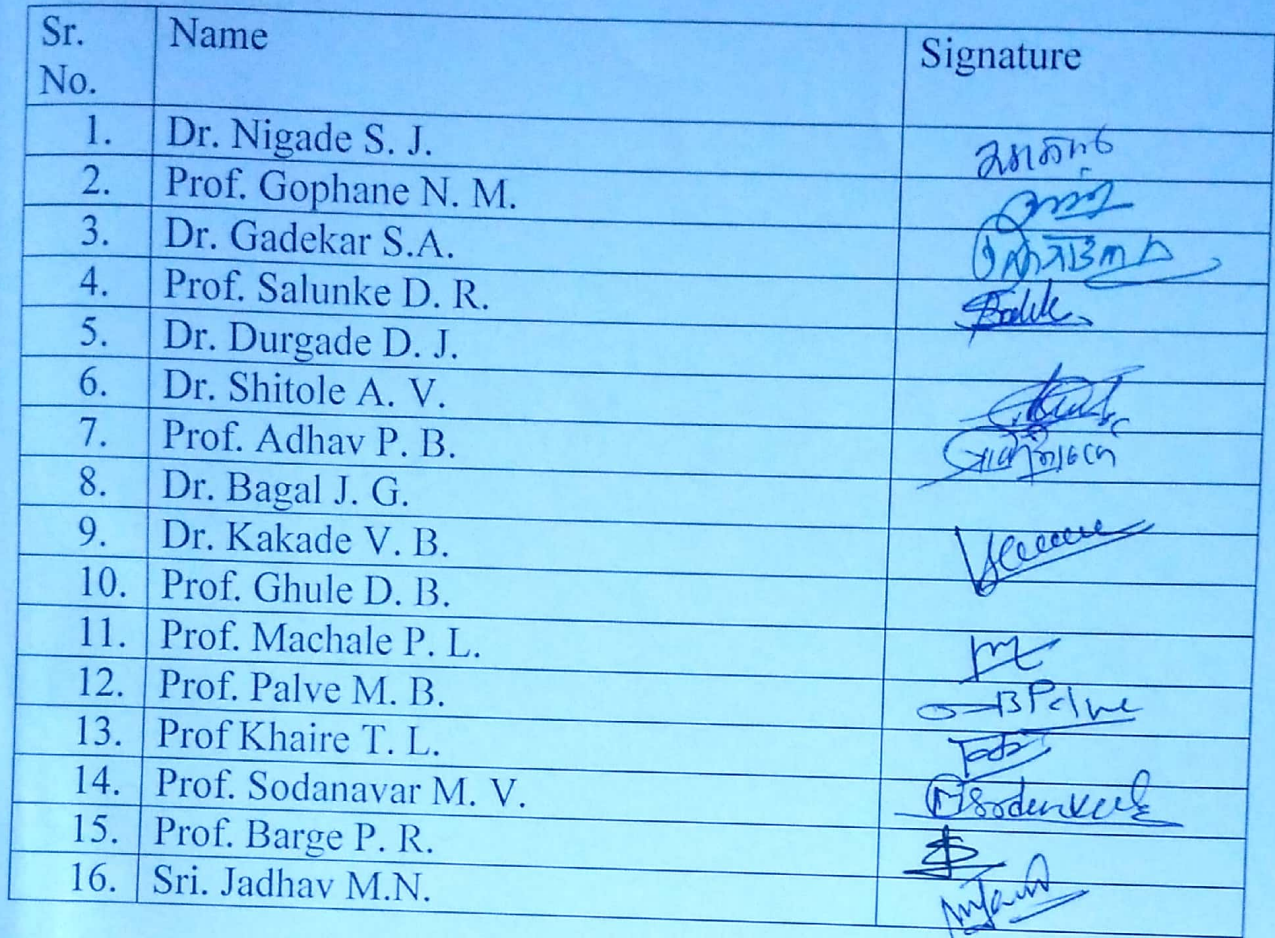 Sr. No. Name Signature
1. Dr. Nigade S. J.
2. Prof. Gophane N. M.
3. Dr. Gadekar S.A.
4. Prof. Salunke D. R.
5. Dr. Durgade D. J.
6. Dr. Shitole A. V.
7. Prof. Adhav P. B.
8. Dr. Bagal J. G.
9. Dr. Kakade V. B.
10. Prof. Ghule D. B.
11. Prof. Machale P. L.
12. Prof. Palve M. B.
13. Prof Khaire T. L.
14. Prof. Sodanavar M. V.
15. Prof. Barge P. R.
16. Sri. Jadhav M.N.